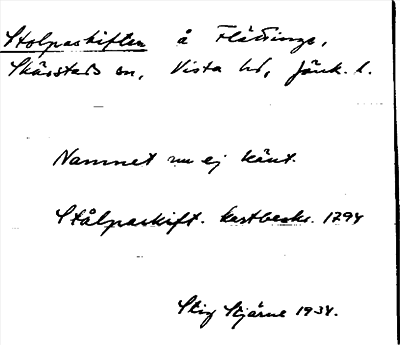 Stolpaskiften å Flättinge,
Skärstads sn, Vista hd, Jönk. l.
Namnet nu ej känt.
Stålpaskift. kartbeskr. 1794
Stig Stjärne 1934.